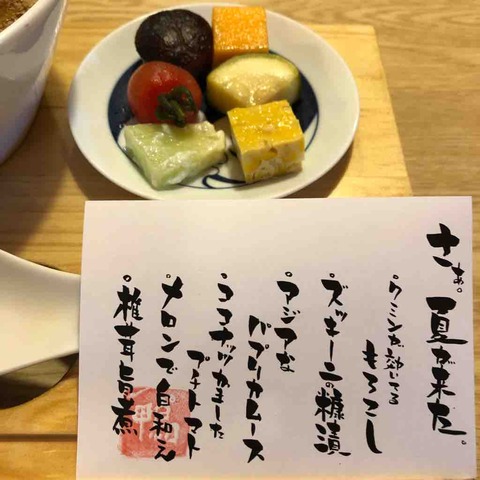 さぁ。夏が来た。
。クミンが効いてる
もろこし
。ズッキーニの糠漬
。アジアな
パプリカムース
。ココナッツかました
プチトマト
。メロンで白和え
。椎茸旨煮